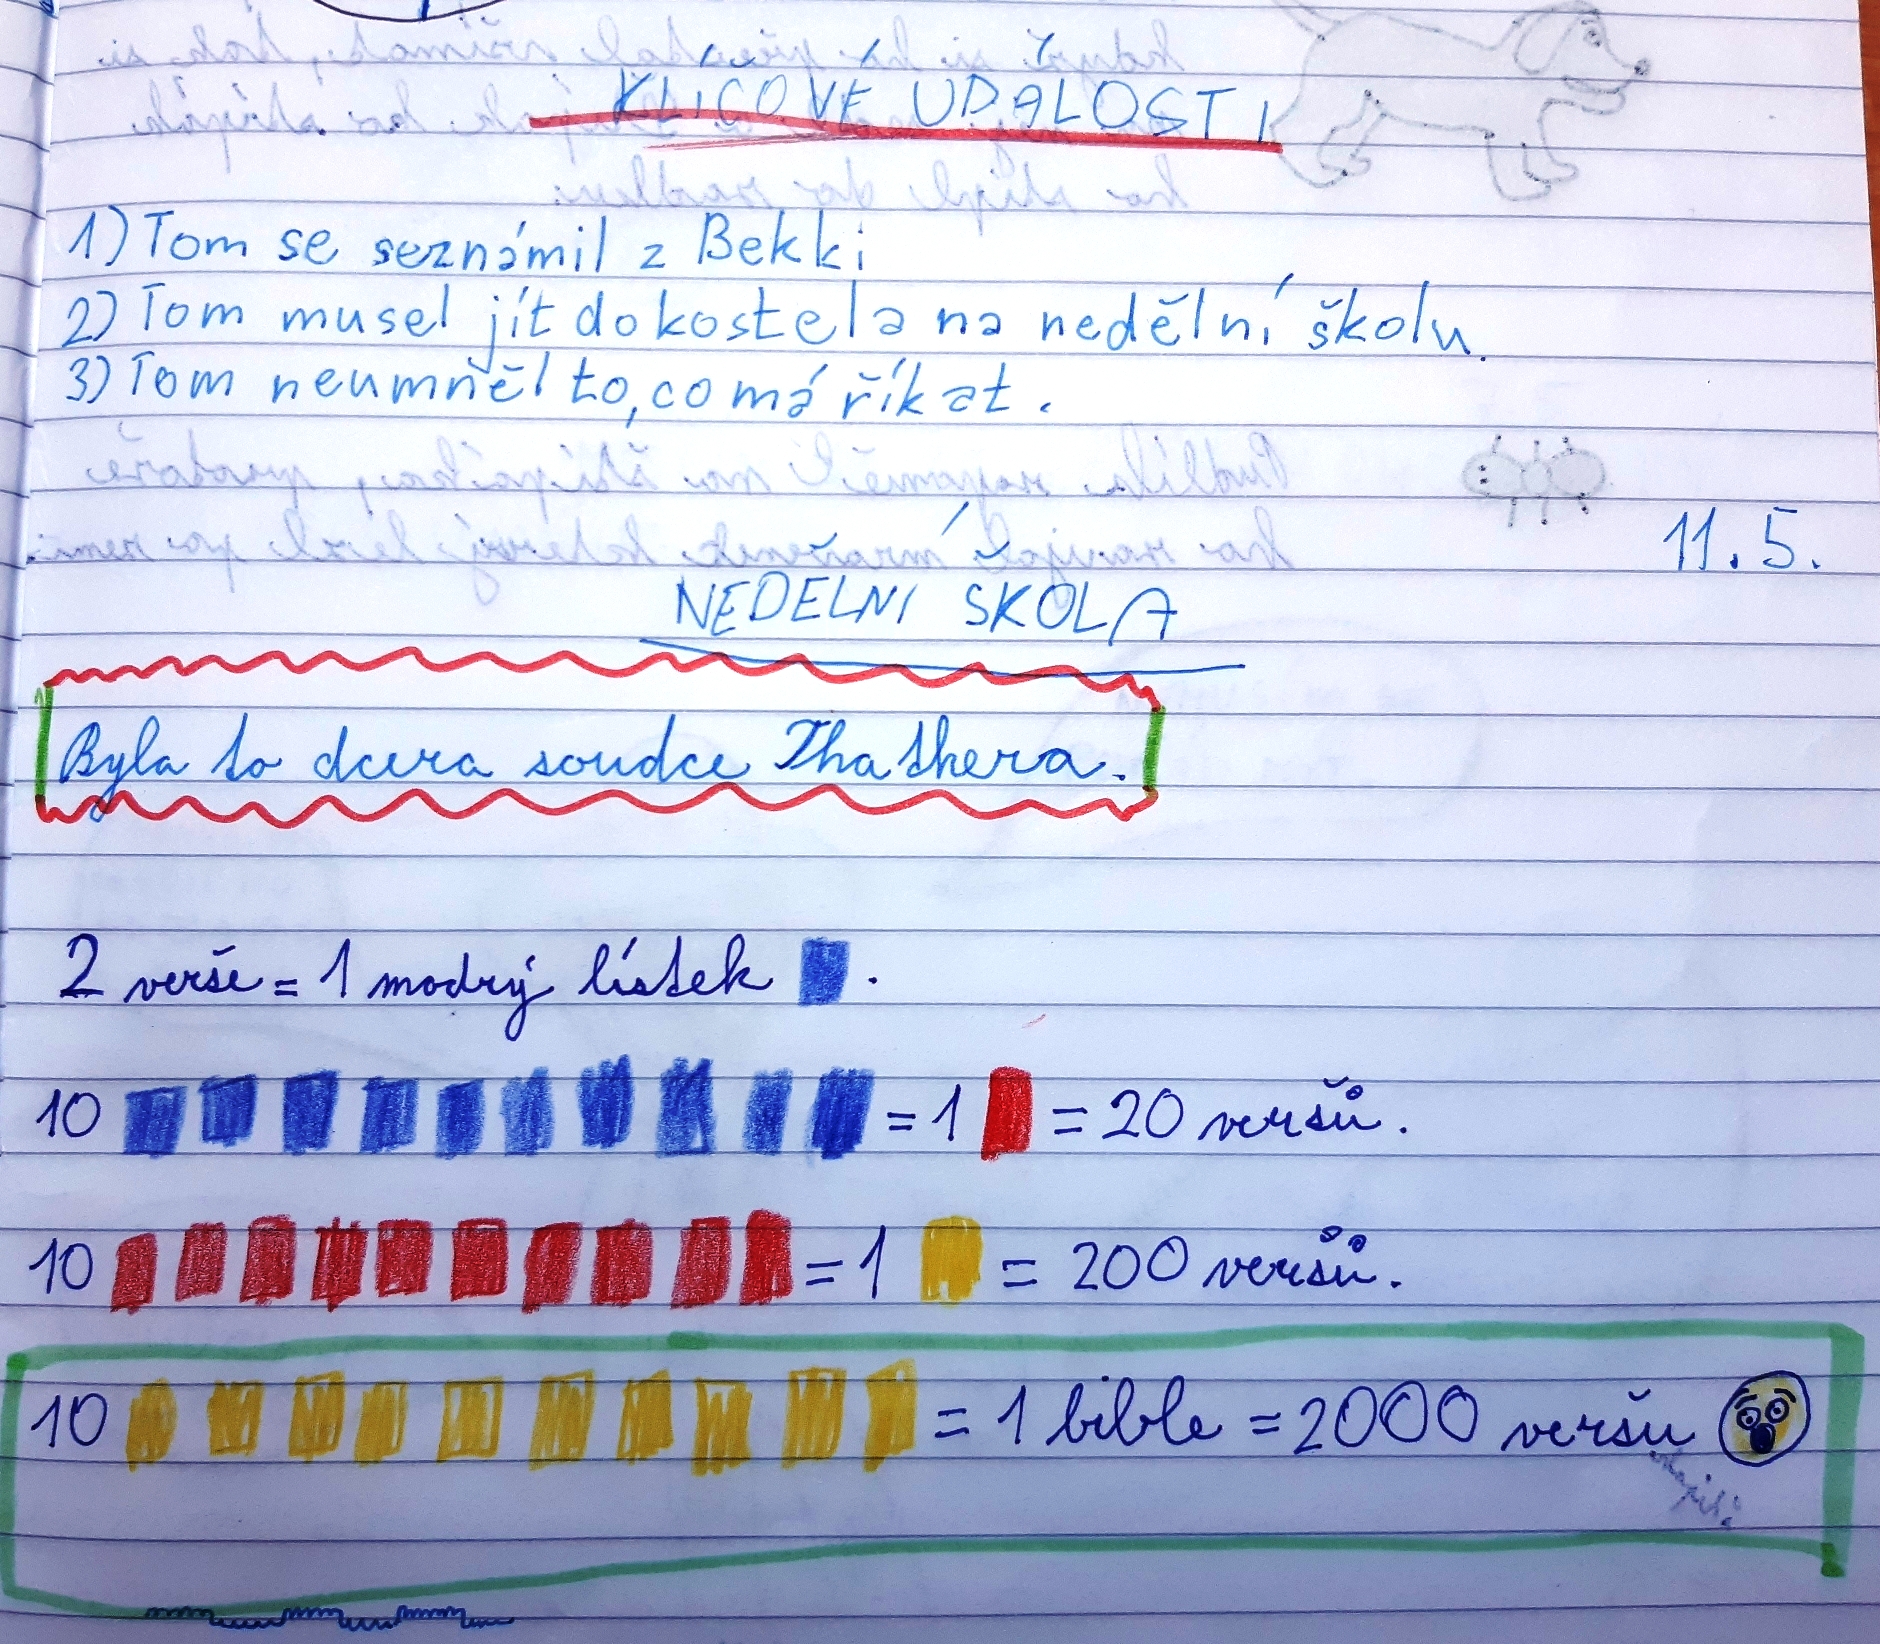 KLÍČOVÉ UDÁLOSTI
1) Tom se seznámil z Bekki
2) Tom musel jít do kostela na nedělní školu.
3) Tom neumněl to, co má říkat.
11.5.
NEDĚLNÍ ŠKOLA
Byla to dcera soudce Thathera.
2 verše = 1 modrý lístek .
10 = 1 = 20 veršů.
10 = 1 = 200 veršů.
10 = 1 bible = 2000 veršu